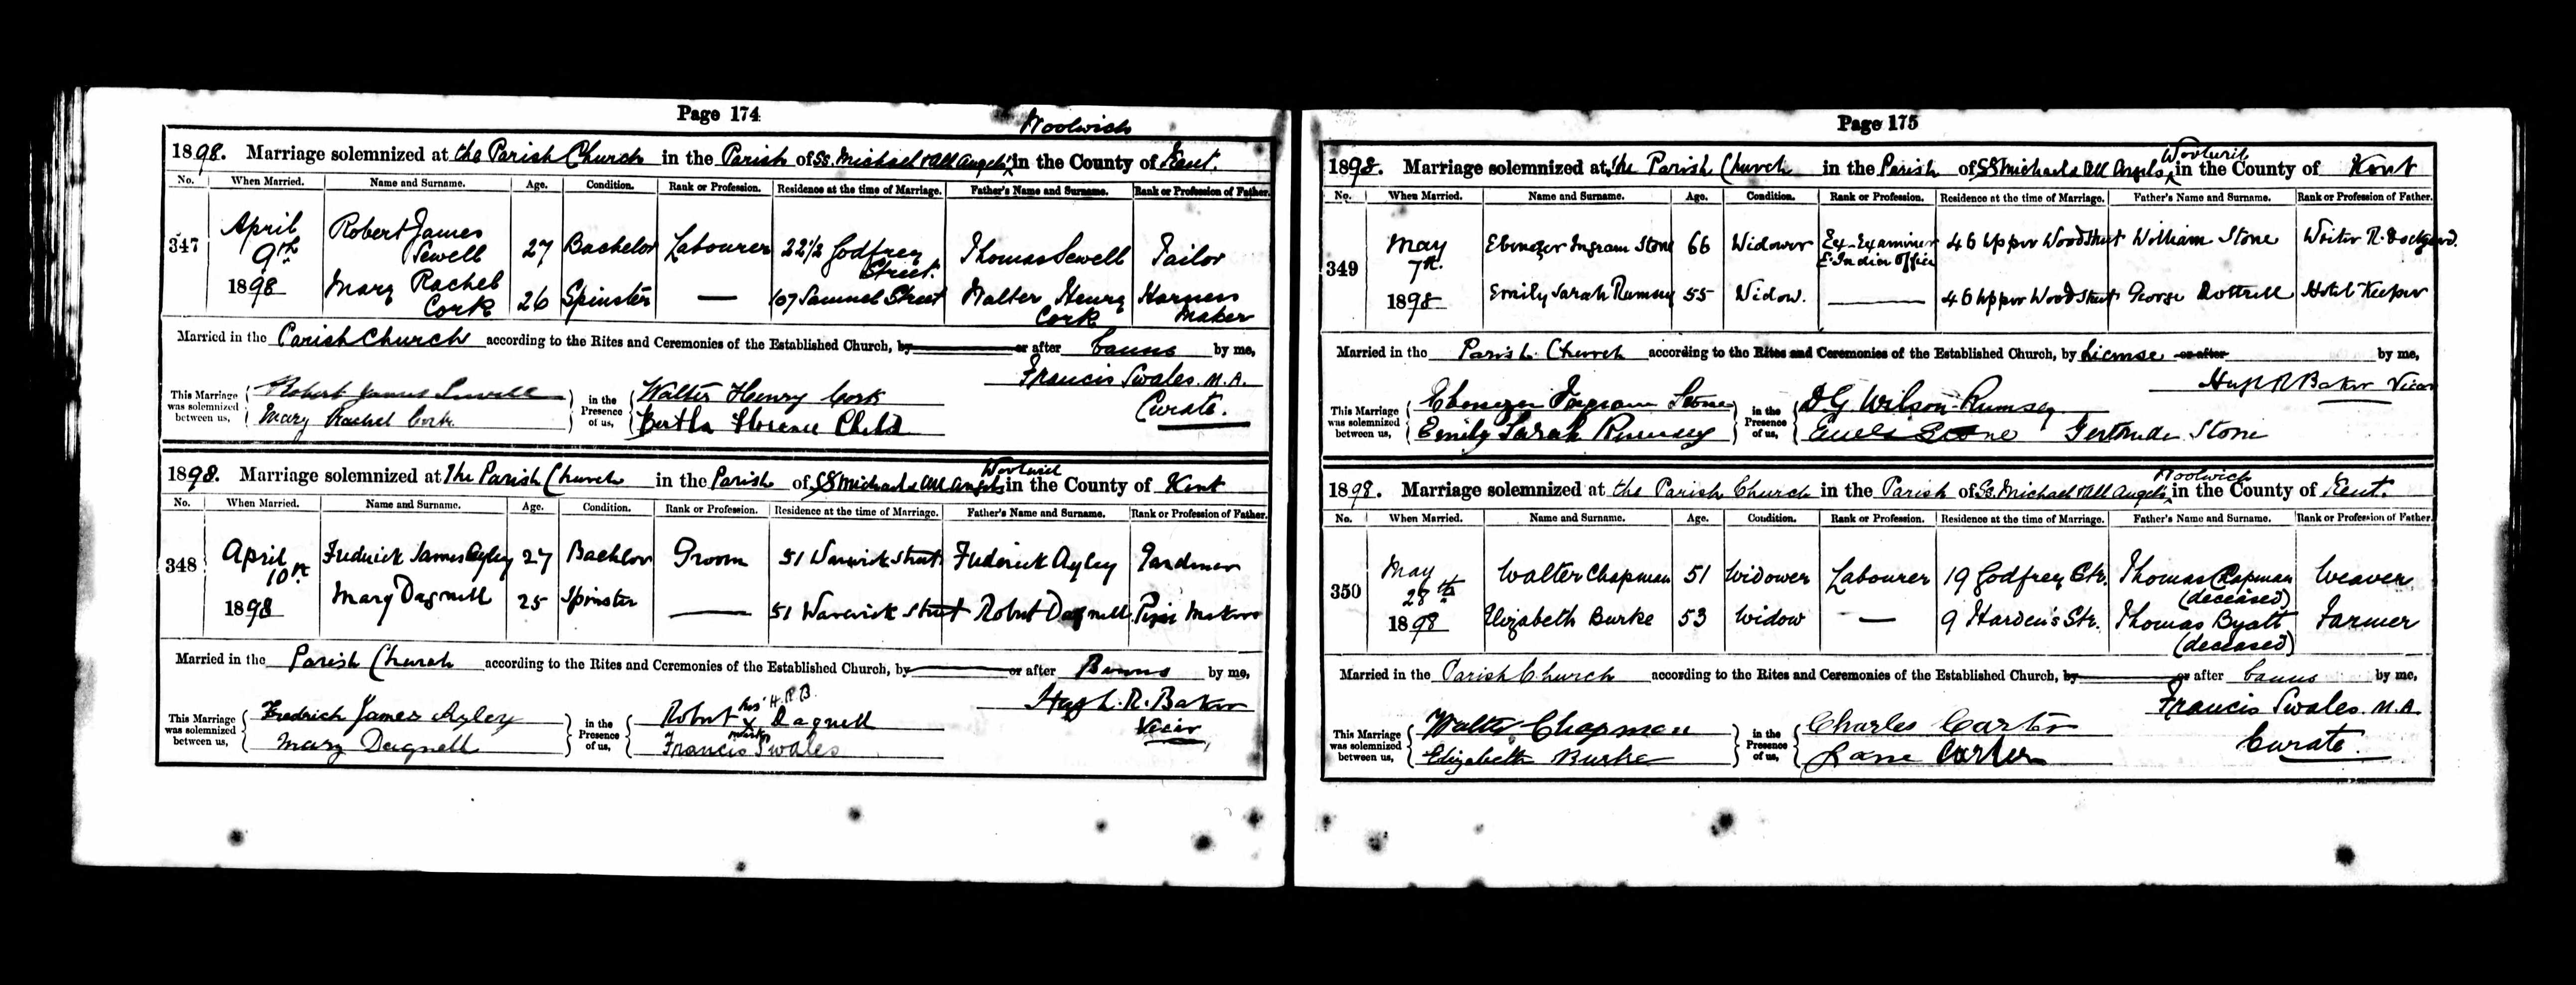 Page 174
Woolwich
1898. Marriage solemnized at the Parish Church in the Parish of Ss. Michael & All Angels in the County of Kent.
No. When Married. Name and Surname. Age. Condition. Rank or Profession. Residence at the time of Marriage. Father's Name and Surname. Rank or Profession of Father.
347 April 9th 1898 Robert James Sewell 27 Bachelor Labourer 22 1/2 Godfrey Street. Thomas Sewell Tailor
Mary Rachel Cork 26 Spinster — 107 Samuel Street Walter Henry Cork Harness Maker
Married in the Parish Church according to the Rites and Ceremonies of the Established Church, by or after banns by me,
Francis Swales. M.A. Curate.
This Marriage was solemnized between us, Robert James Sewell Mary Rachel Cork in the Presence of us, Walter Henry Cork Bertha Florence Child
Woolwich
1898. Marriage solemnized at The Parish Church in the Parish of SS Michael & All Angels in the County of Kent
No. When Married. Name and Surname. Age. Condition. Rank or Profession. Residence at the time of Marriage. Father's Name and Surname. Rank or Profession of Father.
348 April 10th 1898 Frederick James Ayley 27 Bachelor Groom 51 Warwick Street Frederick Ayley Gardener
Mary Dagnell 25 Spinster — 51 Warwick Street Robert Dagnell Pipe Maker
Married in the Parish Church according to the Rites and Ceremonies of the Established Church, by or after Banns by me,
Hugh. R. Baker Vicar
This Marriage was solemnized between us, Fredrich James Ayley Mary Dagnell in the Presence of us, Robert his X mark Dagnell H.R.B. Francis Swales
Page 175
Woolwich
1898. Marriage solemnized at The Parish Church in the Parish of SS Michael & All Angels in the County of Kent
No. When Married. Name and Surname. Age. Condition. Rank or Profession. Residence at the time of Marriage. Father's Name and Surname. Rank or Profession of Father.
349 May 7th. 1898 Ebenezer Ingram Stone 66 Widower Ex-Examiner E. India Office 46 Upper Wood Street William Stone Writer R. Dockyard.
Emily Sarah Rumsey 55 Widow. — 46 Upper Wood Street George Dottrell Hotel Keeper
Married in the Parish Church according to the Rites and Ceremonies of the Established Church, by License or after by me,
Hugh R Baker Vicar
This Marriage was solemnized between us, Ebenezer Ingram Stone Emily Sarah Rumsey in the Presence of us, D G Wilson-Rumsey Stone Gertrude Stone
Woolwich
1898. Marriage solemnized at the Parish Church in the Parish of Ss. Michael & All Angels in the County of Kent.
No. When Married. Name and Surname. Age. Condition. Rank or Profession. Residence at the time of Marriage. Father's Name and Surname. Rank or Profession of Father.
350 May 28th 1898 Walter Chapman 51 Widower Labourer 19 Godfrey Str. Thomas Chapman (deceased) Weaver
Elizabeth Burke 53 Widow — 9 Harden's Str. Thomas Byatt (deceased) Farmer
Married in the Parish Church according to the Rites and Ceremonies of the Established Church, by or after banns by me,
Francis Swales. M.A. Curate.
This Marriage was solemnized between us, Walter Chapman Elizabeth Burke in the Presence of us, Charles Carter Jane Carter